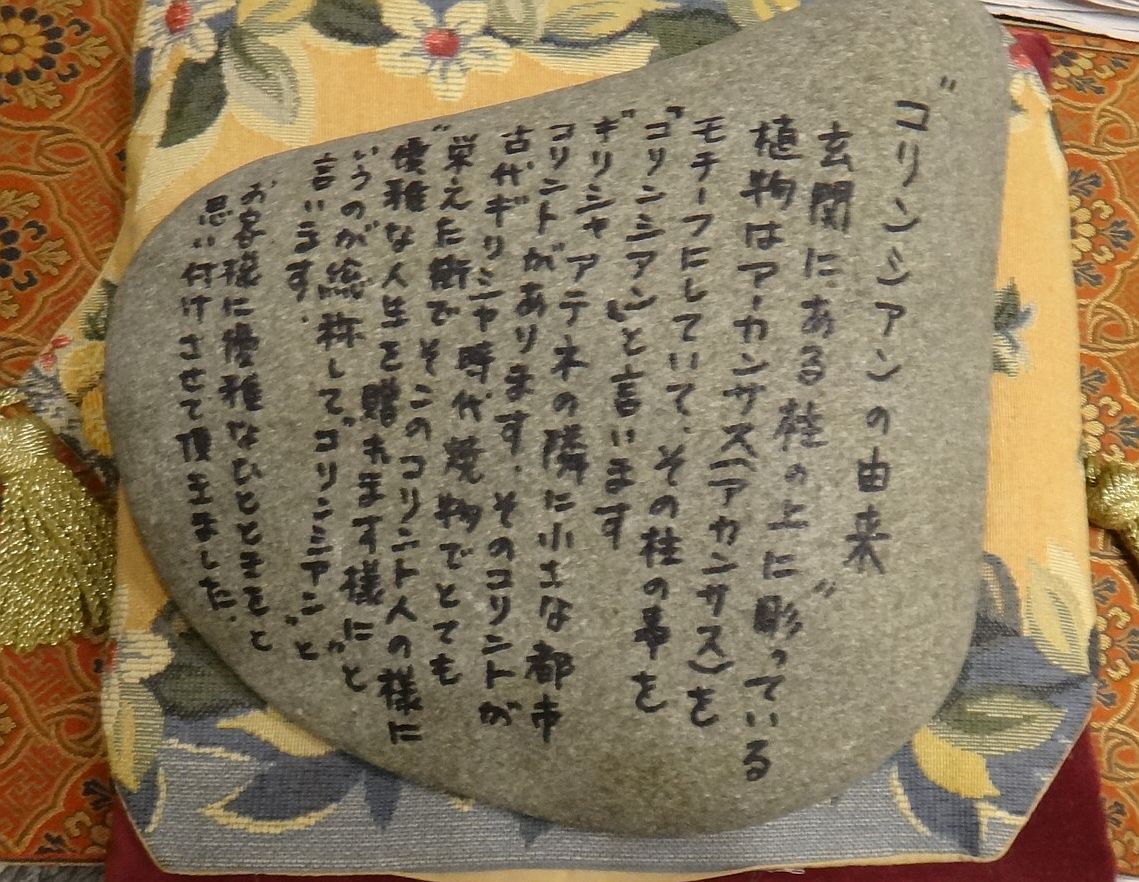 "コリンシアンの由来"
玄関にある柱の上に彫っている
植物はアーカンサス(アカンサス)を
モチーフにしていて、その柱の事を
「コリンシアン」と言います
ギリシャ アテネの隣に小さな都市
コリントがあります。そのコリントが
古代ギリシャ時代焼物でとても
栄えた街でそこのコリント人の様に
"優雅な人生を贈れます様に"と
いうのが総称して"コリンシアン"と
言います。
お客様に優雅なひとときをと
思い付けさせて頂きました。